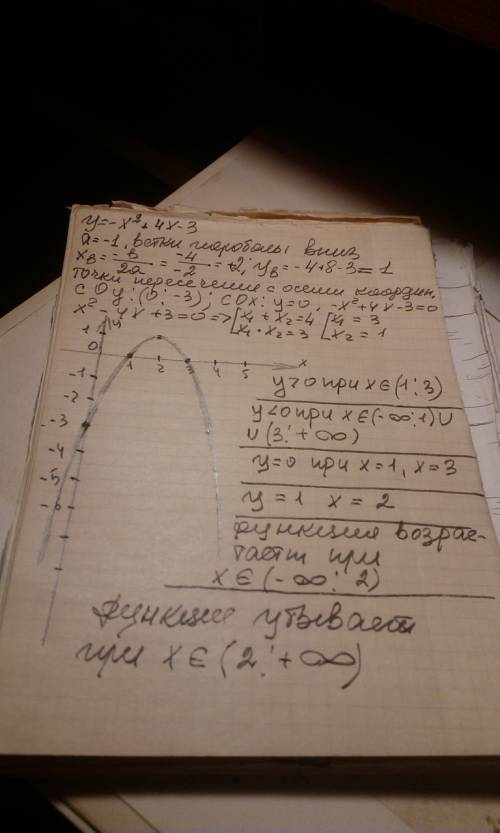 y=-x²+4x-3
a=-1, ветки параболы вниз
xв=-в/2a=-4/-2=2, yв=-4+8-3=1
точки пересечения с осями координ.
с Oy: (0; -3); с OX: y=0, -x²+4x-3=0
x²-4x+3=0=>[x₁+x₂=4 [x₁=3
x₁·x₂=3 x₂=1
y
1
0
1 2 3 4 5 x
-1
-2
-3
-4
-5
-6
y>0 при x∈(1;3)
y<0 при x∈(-∞;1)∪
∪(3;+∞)
y=0 при x=1, x=3
y=1 x=2
функция возрас-
тает при
x∈(-∞;2)
функция убывает
при x∈(2;+∞)